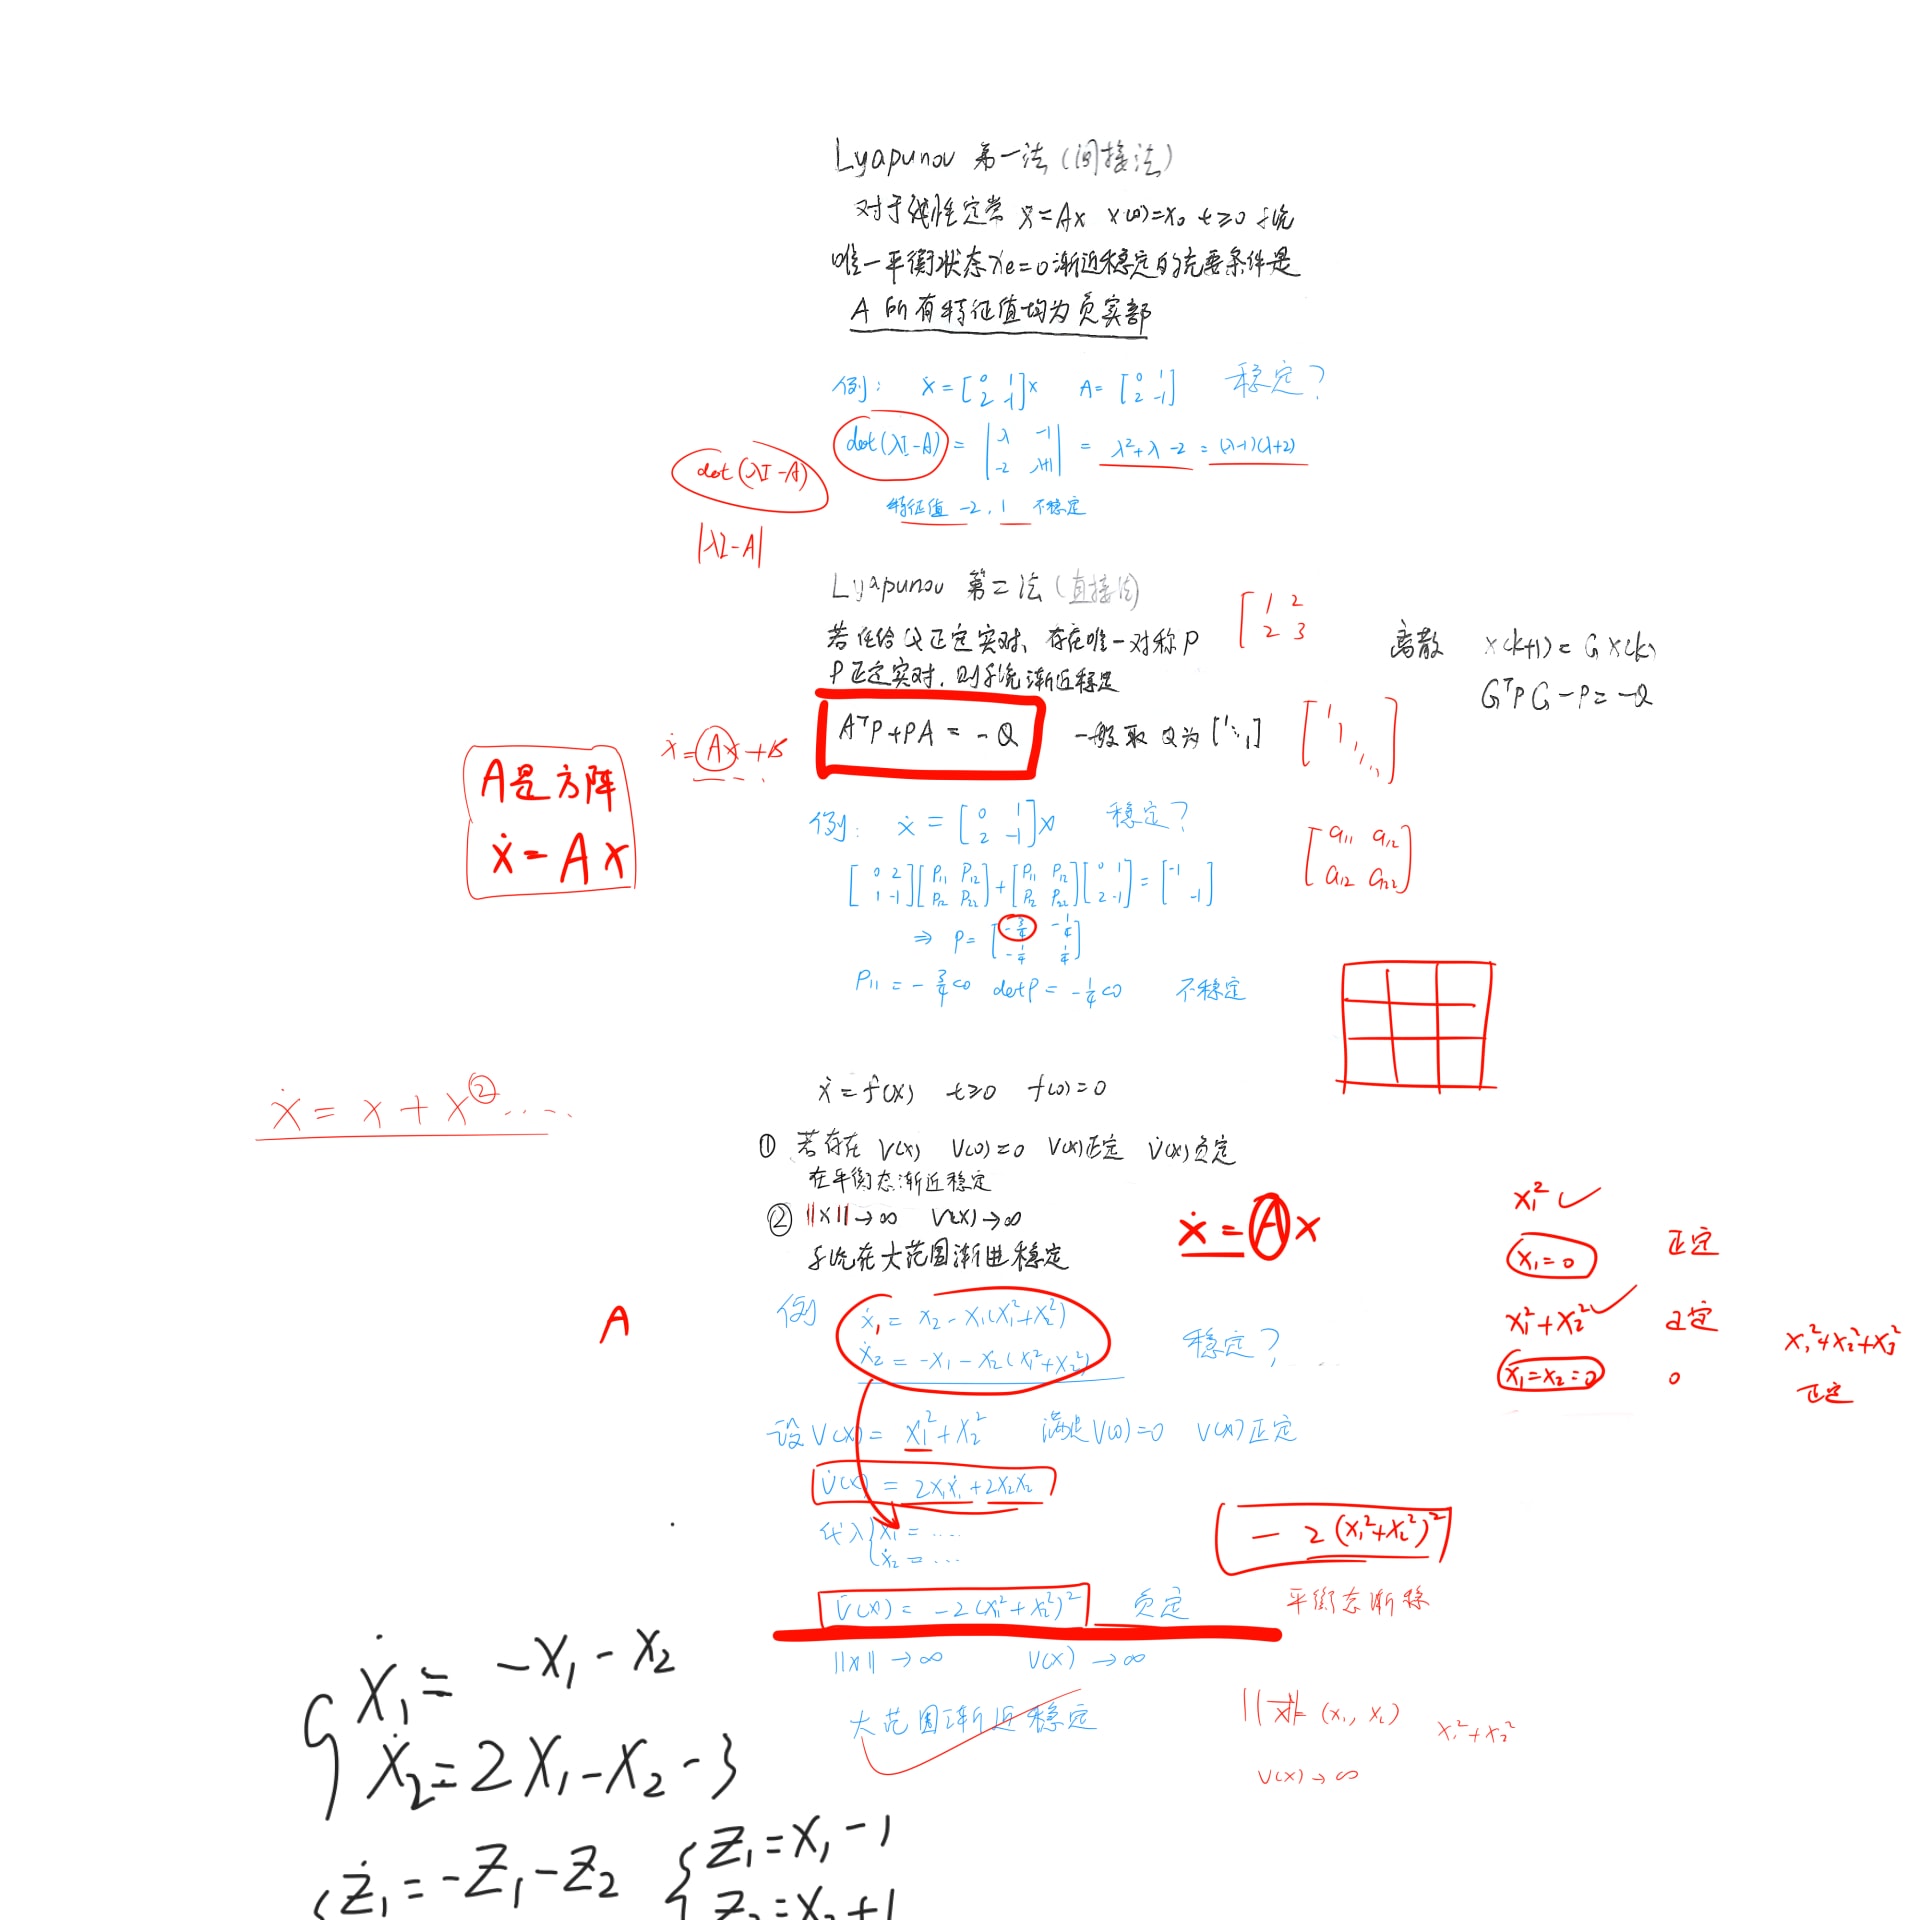 Lyapunov 第一法（间接法）
对于线性定常 ẋ=Ax x(0)=x₀ t≥0 系统
唯一平衡状态xe=0渐近稳定的充要条件是
A 的所有特征值均为负实部
例： ẋ=[0 1; 2 -1]x A=[0 1; 2 -1] 稳定？
det(λI-A) = |λ -1; -2 λ+1| = λ²+λ-2 = (λ-1)(λ+2)
det(λI-A)
特征值 -2, 1 不稳定
|λI-A|
Lyapunov 第二法（直接法）
[1 2; 2 3
若任给 Q 正定实对、存在唯一对称P
P正定实对，则系统渐近稳定
离散 x(k+1)=Gx(k)
GᵀPG-P=-Q
AᵀP+PA=-Q 一般取 Q为 [1⋱1]
[1 1 ⋱]
ẋ=Ax+B
A是方阵
ẋ=Ax
例： ẋ=[0 1; 2 -1]x 稳定？
[a₁₁ a₁₂; a₁₂ a₂₂]
[0 2; 1 -1][P₁₁ P₁₂; P₁₂ P₂₂]+[P₁₁ P₁₂; P₁₂ P₂₂][0 1; 2 -1]=[-1 ; -1]
⇒ P=[-3/4 -1/4; -1/4 1/4]
P₁₁=-3/4<0 detP=-1/4<0 不稳定
ẋ=f(x) t≥0 f(0)=0
ẋ=x+x².....
① 若存在 V(x) V(0)=0 V(x)正定 V̇(x)负定
在平衡态渐近稳定
② ||x||→∞ V(x)→∞
系统在大范围渐进稳定
ẋ=Ax
x₁² ✓
x₁=0 正定
x₁²+x₂² ✓ 正定
x₁=x₂=0 0
x₁²+x₂²+x₃²
正定
A
例 ẋ₁=x₂-x₁(x₁²+x₂²)
ẋ₂=-x₁-x₂(x₁²+x₂²) 稳定？
设V(x)=x₁²+x₂² 满足V(0)=0 V(x)正定
V̇(x)=2x₁ẋ₁+2x₂ẋ₂
代入{ẋ₁=....
ẋ₂=...
-2(x₁²+x₂²)²
平衡态渐稳
V̇(x)=-2(x₁²+x₂²)² 负定
||x||→∞ V(x)→∞
大范围渐近稳定
||x||=(x₁, x₂) x₁²+x₂²
V(x)→∞
{ẋ₁=-x₁-x₂
ẋ₂=2x₁-x₂-3
{ż₁=-z₁-z₂ {z₁=x₁-1
z₂=x₂+1